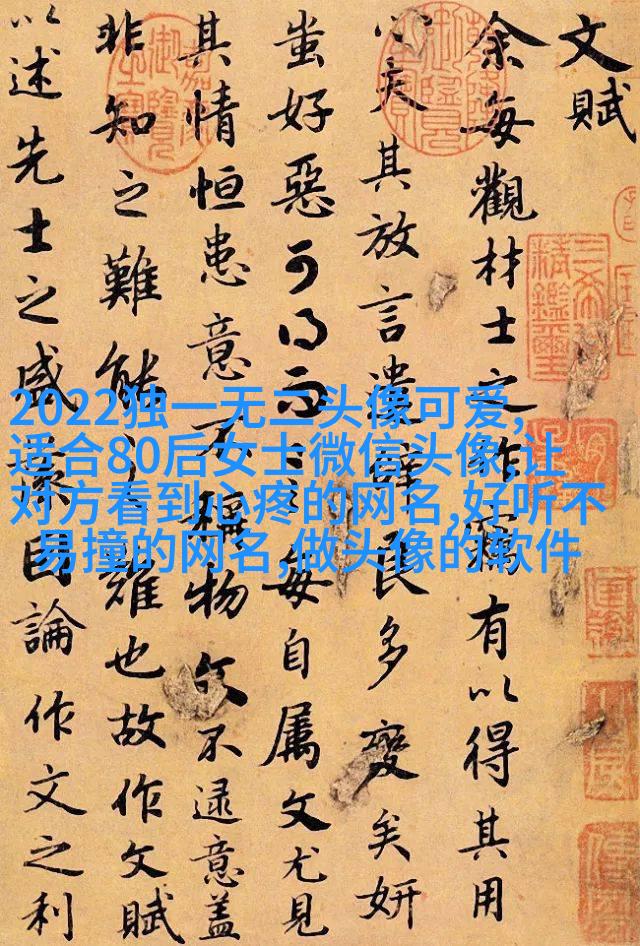 文賦
余每觀材士之作竊有以得其用
心夫其放言遣辭良多變矣妍
蚩好惡可得而言每自屬文尤見
其情恒患意不稱物文不逮意蓋
非知之難能之難也故作文賦
以述先士之盛藻因論作文之利
2022独一无二头像可爱,
适合80后女士微信头像,让
对方看到心疼的网名,好听不
易撞的网名,做头像的软件